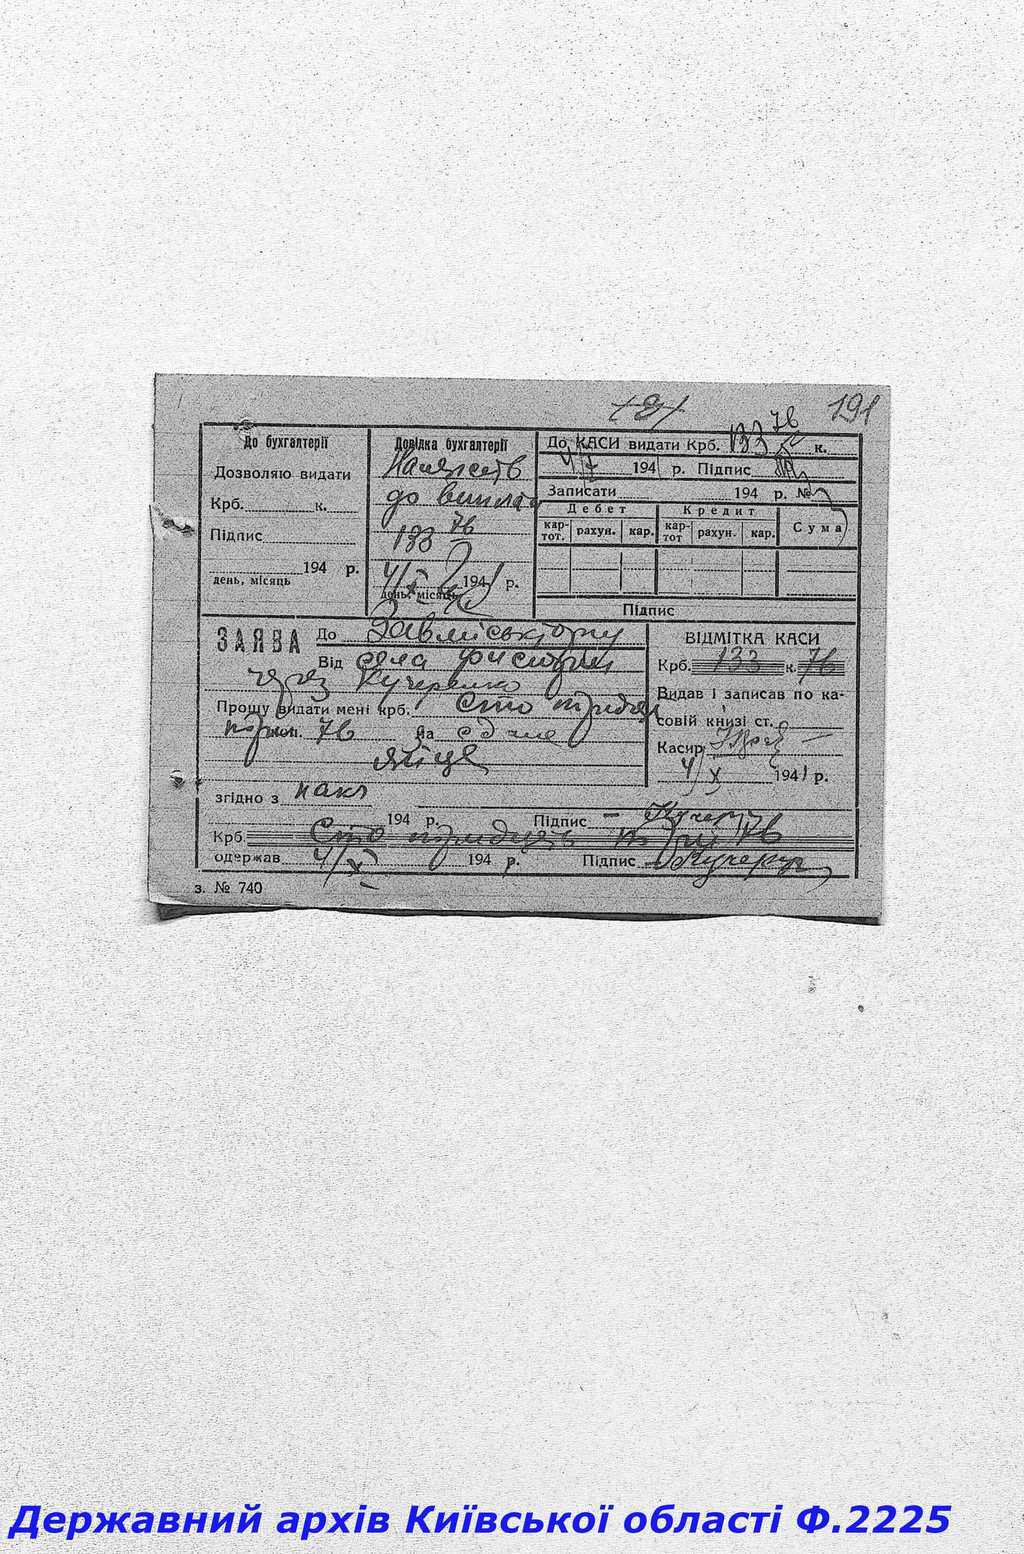 191
До бухгалтерії
Дозволяю видати
Крб. к.
Підпис
194 р.
день, місяць
Довідка бухгалтерії
Належить
до виплати
133 76
4/X 1941 р.
день, місяць
До КАСИ видати Крб. 133 76 к.
4/X 1941 р. Підпис
Записати 194 р. №
Дебет Кредит Сума
кар-тот. рахун. кар. кар-тот рахун. кар.
Підпис
ЗАЯВА До
Від села
через Кучеренко
Прошу видати мені крб. Сто тридцять
три коп. 76 На здане
яйце
згідно з накл
194 р. Підпис
Крб. Сто тридцять три 76
одержав 4/X 194 р. Підпис
ВІДМІТКА КАСИ
Крб. 133 к. 76
Видав і записав по ка-
совій книзі ст.
Касир
4/X 1941 р.
з. № 740
Державний архів Київської області Ф.2225